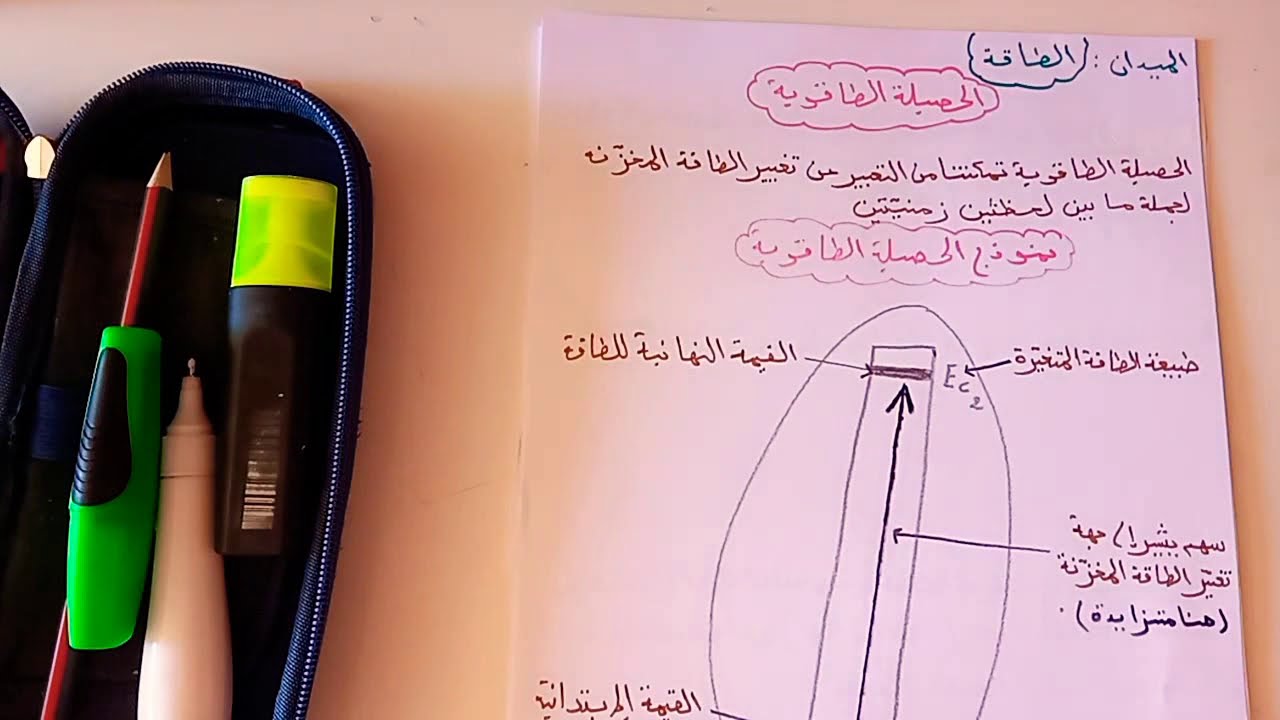 الميدان : الطاقة
الحصيلة الطاقوية
الحصيلة الطاقوية تمكننا من التعبير عن تغيير الطاقة المخزّنه
لجملة ما بين لحظتين زمنيّتين
نموذج الحصيلة الطاقوية
طبيعة الطاقة المتغيّرة
القيمة النهائية للطاقة
Ec2
سهم يشير إلى جهة
تغيّر الطاقة المخزّنة
(هنا متزايدة)
القيمة الإبتدائية